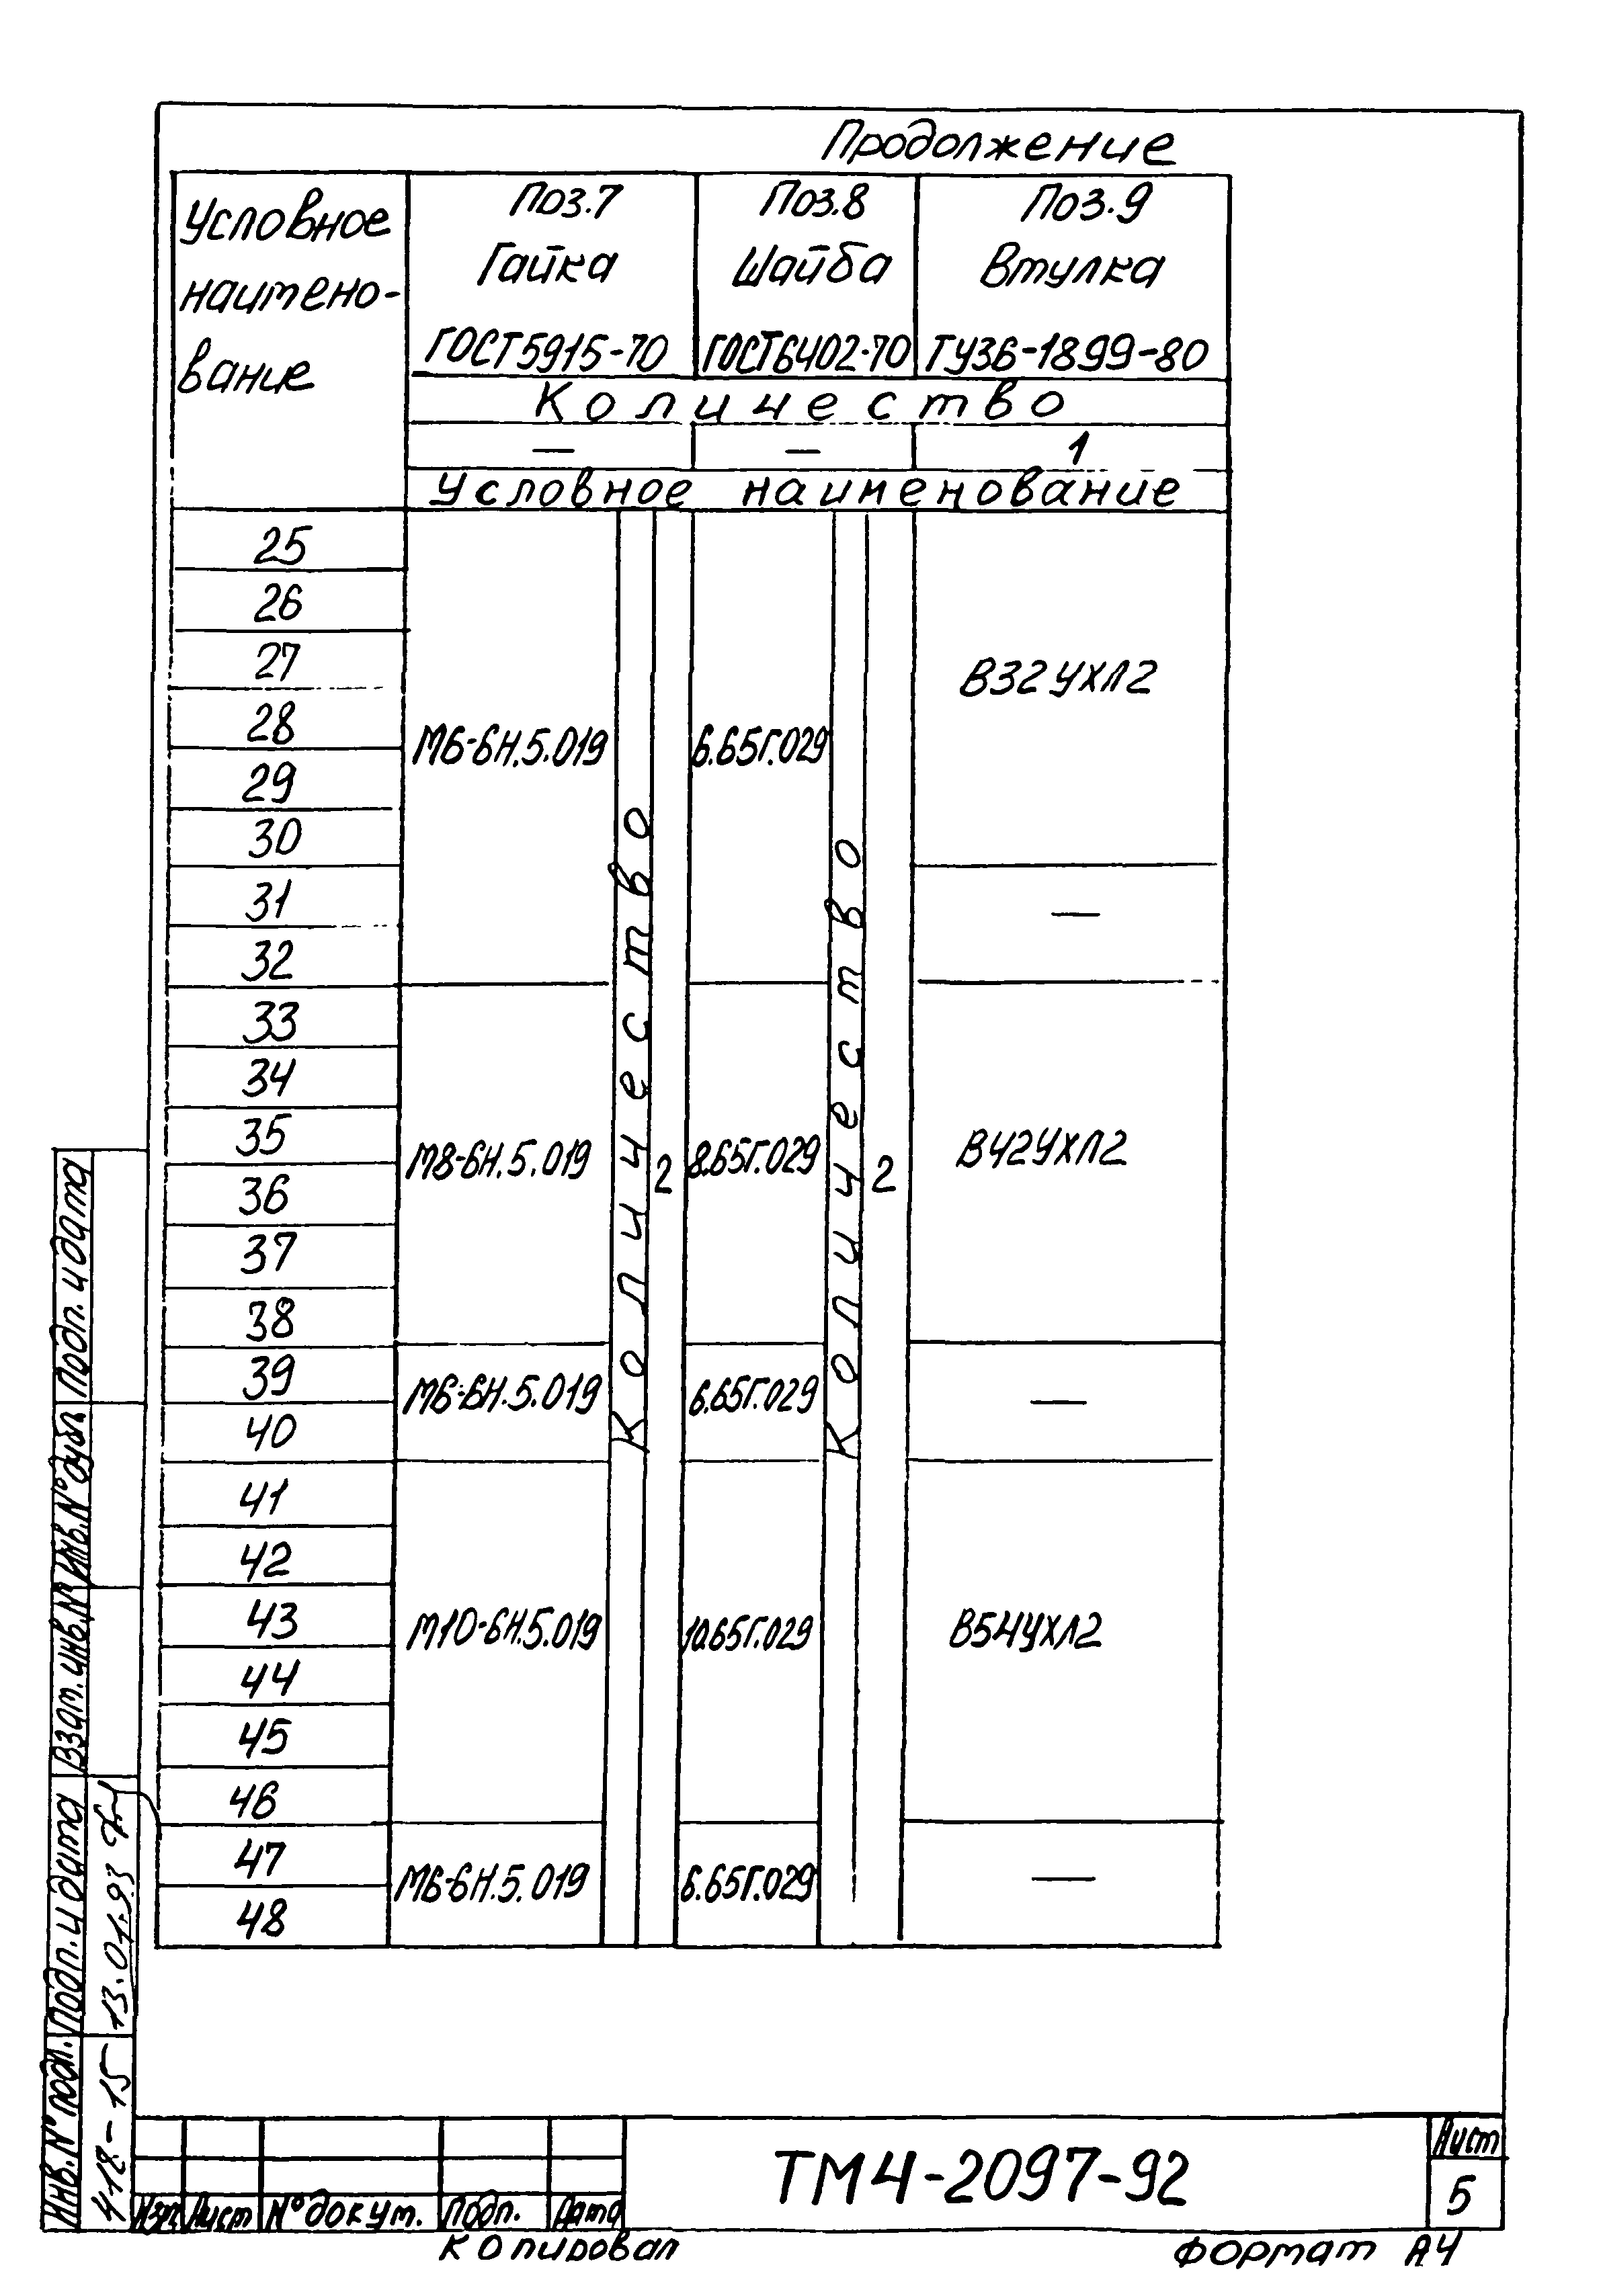 Продолжение
Условное
наимено-
вание
Поз.7
Гайка
ГОСТ5915-70
Поз.8
Шайба
ГОСТ6402-70
Поз.9
Втулка
ТУ36-1899-80
Количество
— — 1
Условное наименование
25
26
27
28
29
30
31
32
33
34
35
36
37
38
39
40
41
42
43
44
45
46
47
48
М6-6Н.5.019
М8-6Н.5.019
М6-6Н.5.019
М10-6Н.5.019
М6-6Н.5.019
Количество
2
6.65Г.029
8.65Г.029
6.65Г.029
10.65Г.029
6.65Г.029
Количество
2
В32УХЛ2
—
В42УХЛ2
—
В54УХЛ2
—
Подп. и дата
Инв.N°дубл.
Взам.инв.N°
Подп. и дата
13.01.93
Инв.N°подл.
418-15
Изм Лист N°докум. Подп. Дата
ТМ4-2097-92
Лист
5
Копировал
Формат А4